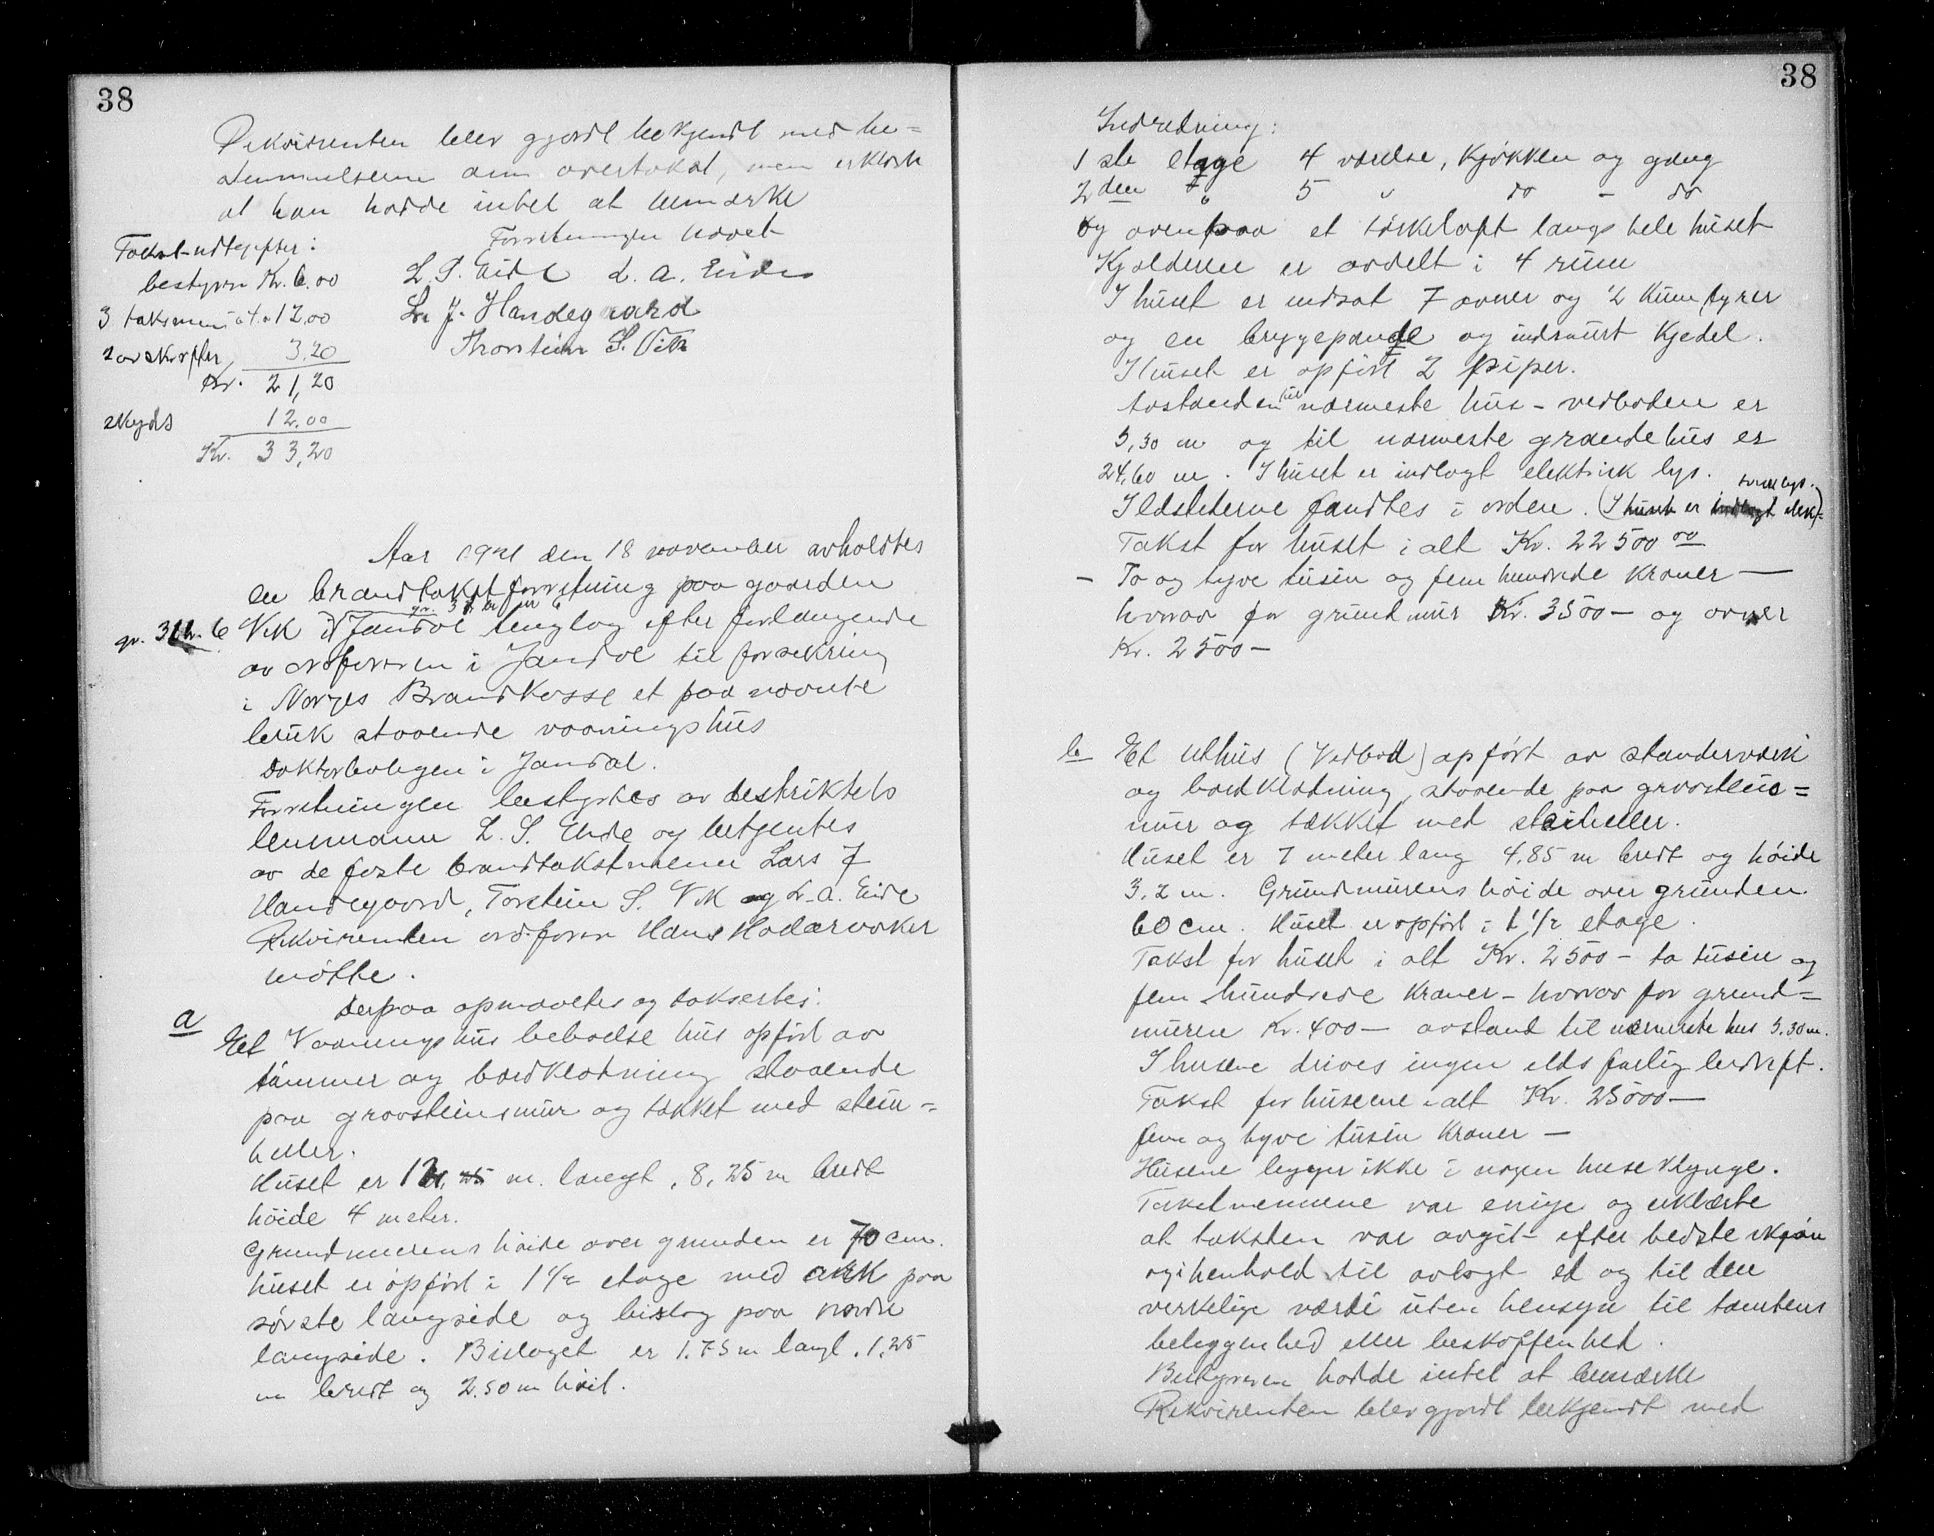 38
Rekvirenten blev gjordt bekjendt med be=
stemmelserne om overtakst, men erklærte
at han hadde intet at bemærke
Forretningen hævet
L. S. Eide L. A. Eide
Lr J. Handegaard
Thorstein S. Vik
Takst-udtgifter:
bestyren Kr. 6.00
3 taksmenn 12.00
2 avskrifter 3.20
Kr. 21,20
skyds 12.00
Kr. 33,20
Aar 1921 den 18 november avholdtes
en brandtakstforretning paa gaarden
gr. 31 br. nr 6
gr. 31 br. 6 Vik i Jondal tinglag efter forlangende
av ordføreren i Jondal til forsekring
i Norges Brandkasse et paa nævnte
bruk staaende vaaningshus
Doktorboligen i Jondal.
Forretningen bestyrtes av destriktets
lensmann L. S. Eide og betjentes
av de faste brandtakstmenn Lars J
Handegaard, Torstein S. Vik og L. A. Eide
Rekvirenten ordfører Hans Hodarvoker
møtte.
Derpaa opmaaltes og taksertes:
a
Et Vaaningshus bebodelse hus opført av
tømmer og bordklædning staaende
paa graasteinsmur og tækket med stein=
heller.
Huset er 12, 25 m. langt, 8,25 m bredt
høide 4 meter.
Grundmurens høide over grunden er 70 cm.
huset er opført i 1 1/2 etage med ark paa
søre langside og bislag paa nordre
langside. Bislaget er 1.75 m langt. 1,25
m bredt og 2.50 m høit.
38
Indredning:
1 ste etage 4 værelse, kjøkken og gang
2 den " 5 " do - do
og ovenpaa et tørkeloft langs hele huset
Kjælderen er avdelt i 4 rum
I huset er indsat 7 ovner og 2 kumfyrer
og en bryggepande og indmurt kjedel.
I huset er opført 2 piper.
Avstanden til nærmeste hus - vedboden er
5,30 m og til nærmeste grandehus er
24,60 m. I huset er indlagt elektrisk lys.
Ildstederne fandtes i orden. (I huset er indlagt elek=
trisk lys.)
Takst for huset i alt Kr. 22500 00
- To og tyve tusin og fem hundrede kroner -
hvorav for grundmur Kr. 3500 - og ovner
Kr. 2500 -
b Et uthus (Vedbod) opført av standerværk
og bordklædning, staaende paa graasteins=
mur og tækket med steinheller.
Huset er 7 meter lang 4.85 m bredt og høide
3,2 m. Grundmurens høide over grunden
60 cm. Huset er opført i 1 1/2 etage.
Takst for huset i alt Kr. 2500 - to tusin og
fem hundrede kroner - hvorav for grund=
muren Kr. 400 - avstand til nærmeste hus 5.30 m.
I husene drives ingen ildsfarlig bedrift.
Takst for husene i alt Kr. 25000 -
fem og tyve tusin kroner -
Husene ligger ikke i nogen huseklynge.
Takstmennene var enige og erklærte
at taksten var avgit efter bedste skjøn
og i henhold til avlagt ed og til den
verkelige værdi uten hensyn til tomtens
beliggenhed eller beskaffenhed.
Bestyreren hadde intet at bemærke
Rekvirenten blev gjordt bekjendt med